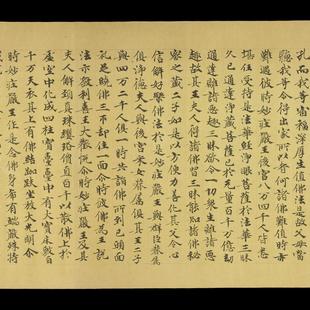 孔而我等宿福深厚生值佛法是故父母當
聽我等令得出家所以者何諸佛難值時亦
難遇彼時妙莊嚴王後宮八万四千人皆悉
堪任受持是法華經淨眼菩薩於法華三昧
久已通達淨藏菩薩已於无量百千万億劫
通達離諸惡趣三昧欲令一切衆生離諸惡
趣故其王夫人得諸佛習三昧能知諸佛秘
密之藏二子如是以方便力善化其父令心
信解好樂佛法於是妙莊嚴王與群臣眷属
俱淨德夫人與後宮采女眷属俱其王二子
與四万二千人俱一時共詣佛所到已頭面
礼足繞佛三帀却住一面尒時彼佛為王說
法示教利喜王大歡悅尒時妙莊嚴王及其
夫人解頸真珠瓔珞價直百千以散佛上於
虛空中化成四柱寶臺臺中有大寶床敷百
千万天衣其上有佛結跏趺坐放大光明尒
時妙莊嚴王作是念佛身希有端嚴殊特